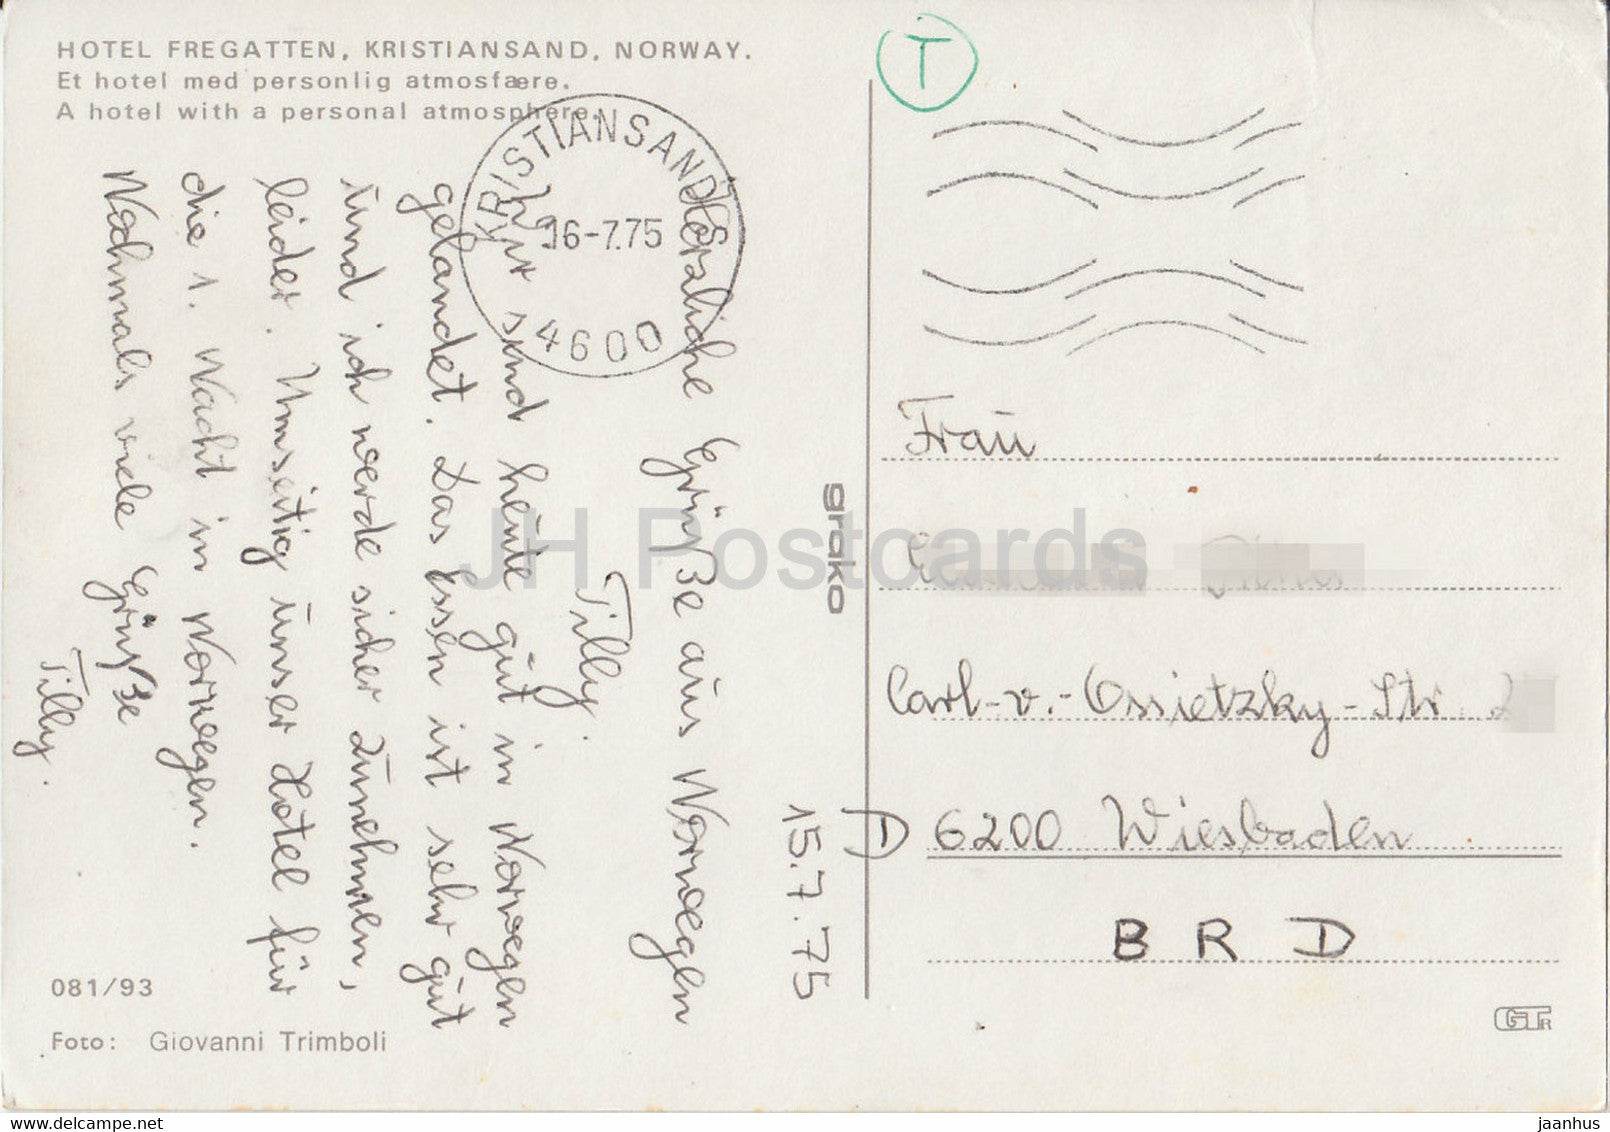 HOTEL FREGATTEN, KRISTIANSAND, NORWAY.
Et hotel med personlig atmosfære.
A hotel with a personal atmosphere.
KRISTIANSAND S
16-7.75
4600
T
15.7.75
Herzliche Grüße aus Norwegen
Tilly.
Wir sind heute gut in Norwegen
gelandet. Das Essen ist sehr gut
und ich werde sicher zunehmen,
leider. Umseitig unser Hotel für
die 1. Nacht in Norwegen.
Nochmals viele Grüße
Tilly.
Frau
Carl-v.-Ossietzky-Str. 2
D 6200 Wiesbaden
BRD
grako
081/93
Foto: Giovanni Trimboli
GTR
JH Postcards
eu.delcampe.net
jaanhus